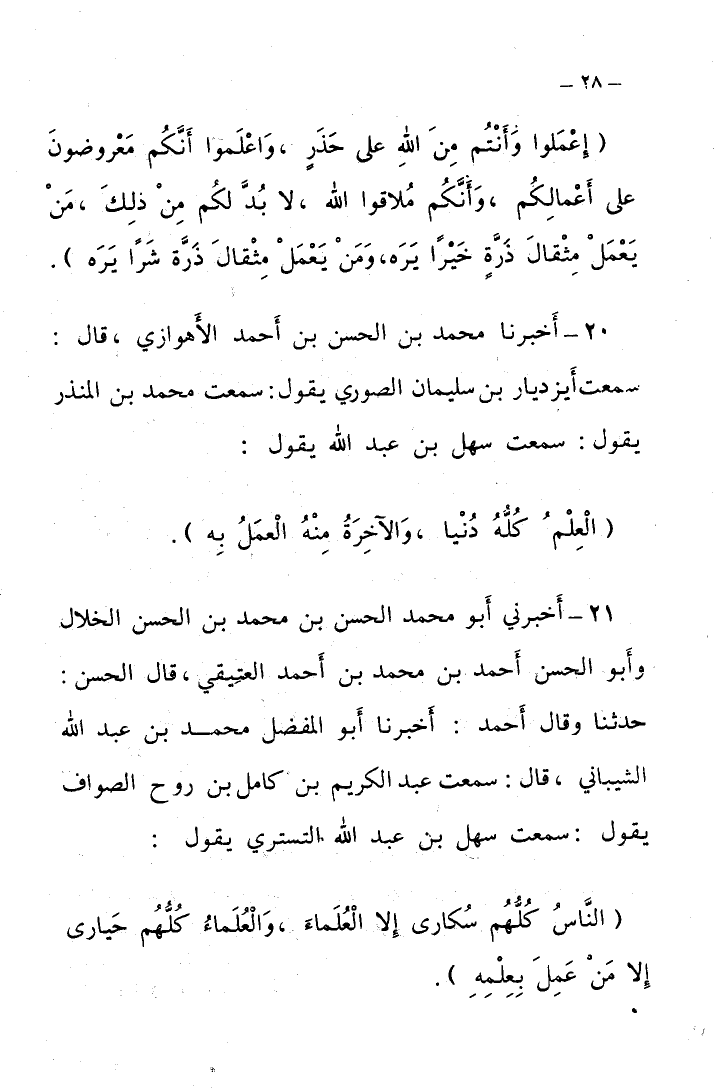 – ٢٨ –
( إِعْمَلوا وَأَنْتُم مِنَ اللهِ على حَذَرٍ ، وَاعْلَموا أَنَّكُم مَعْروضونَ
على أَعْمالِكُم ، وَأَنَّكُم مُلاقوا الله ، لا بُدَّ لكُم مِنْ ذلِكَ ، مَنْ
يَعْمَلْ مِثْقالَ ذَرَّةٍ خَيْرًا يَرَه، وَمَنْ يَعْمَلْ مِثْقالَ ذَرَّة شَرًا يَرَه ) .
٢٠ – أَخبرنا محمد بن الحسن بن أَحمد الأَهوازي ، قال :
سمعت أَيزديار بن سليمان الصوري يقول : سمعت محمد بن المنذر
يقول : سمعت سهل بن عبد الله يقول :
( الْعِلْمُ كُلُّهُ دُنْيا ، وَالآخِرَةُ مِنْهُ الْعمَلُ بِه ) .
٢١ – أَخبرني أَبو محمد الحسن بن محمد بن الحسن الخلال
وأَبو الحسن أَحمد بن محمد بن أَحمد العتِيقي ، قال الحسن :
حدثنا وقال أَحمد : أَخبرنا أَبو المفضل محمـــد بن عبد الله
الشيباني ، قال : سمعت عبد الكريم بن كامل بن روح الصواف
يقول : سمعت سهل بن عبد الله التستري يقول :
( النَّاسُ كُلُّهُم سُكارى إِلا الْعُلَماءَ ، وَالْعُلَماءُ كُلُّهُم حَيارى
إِلا مَنْ عَمِلَ بِعِلْمِهِ ) .